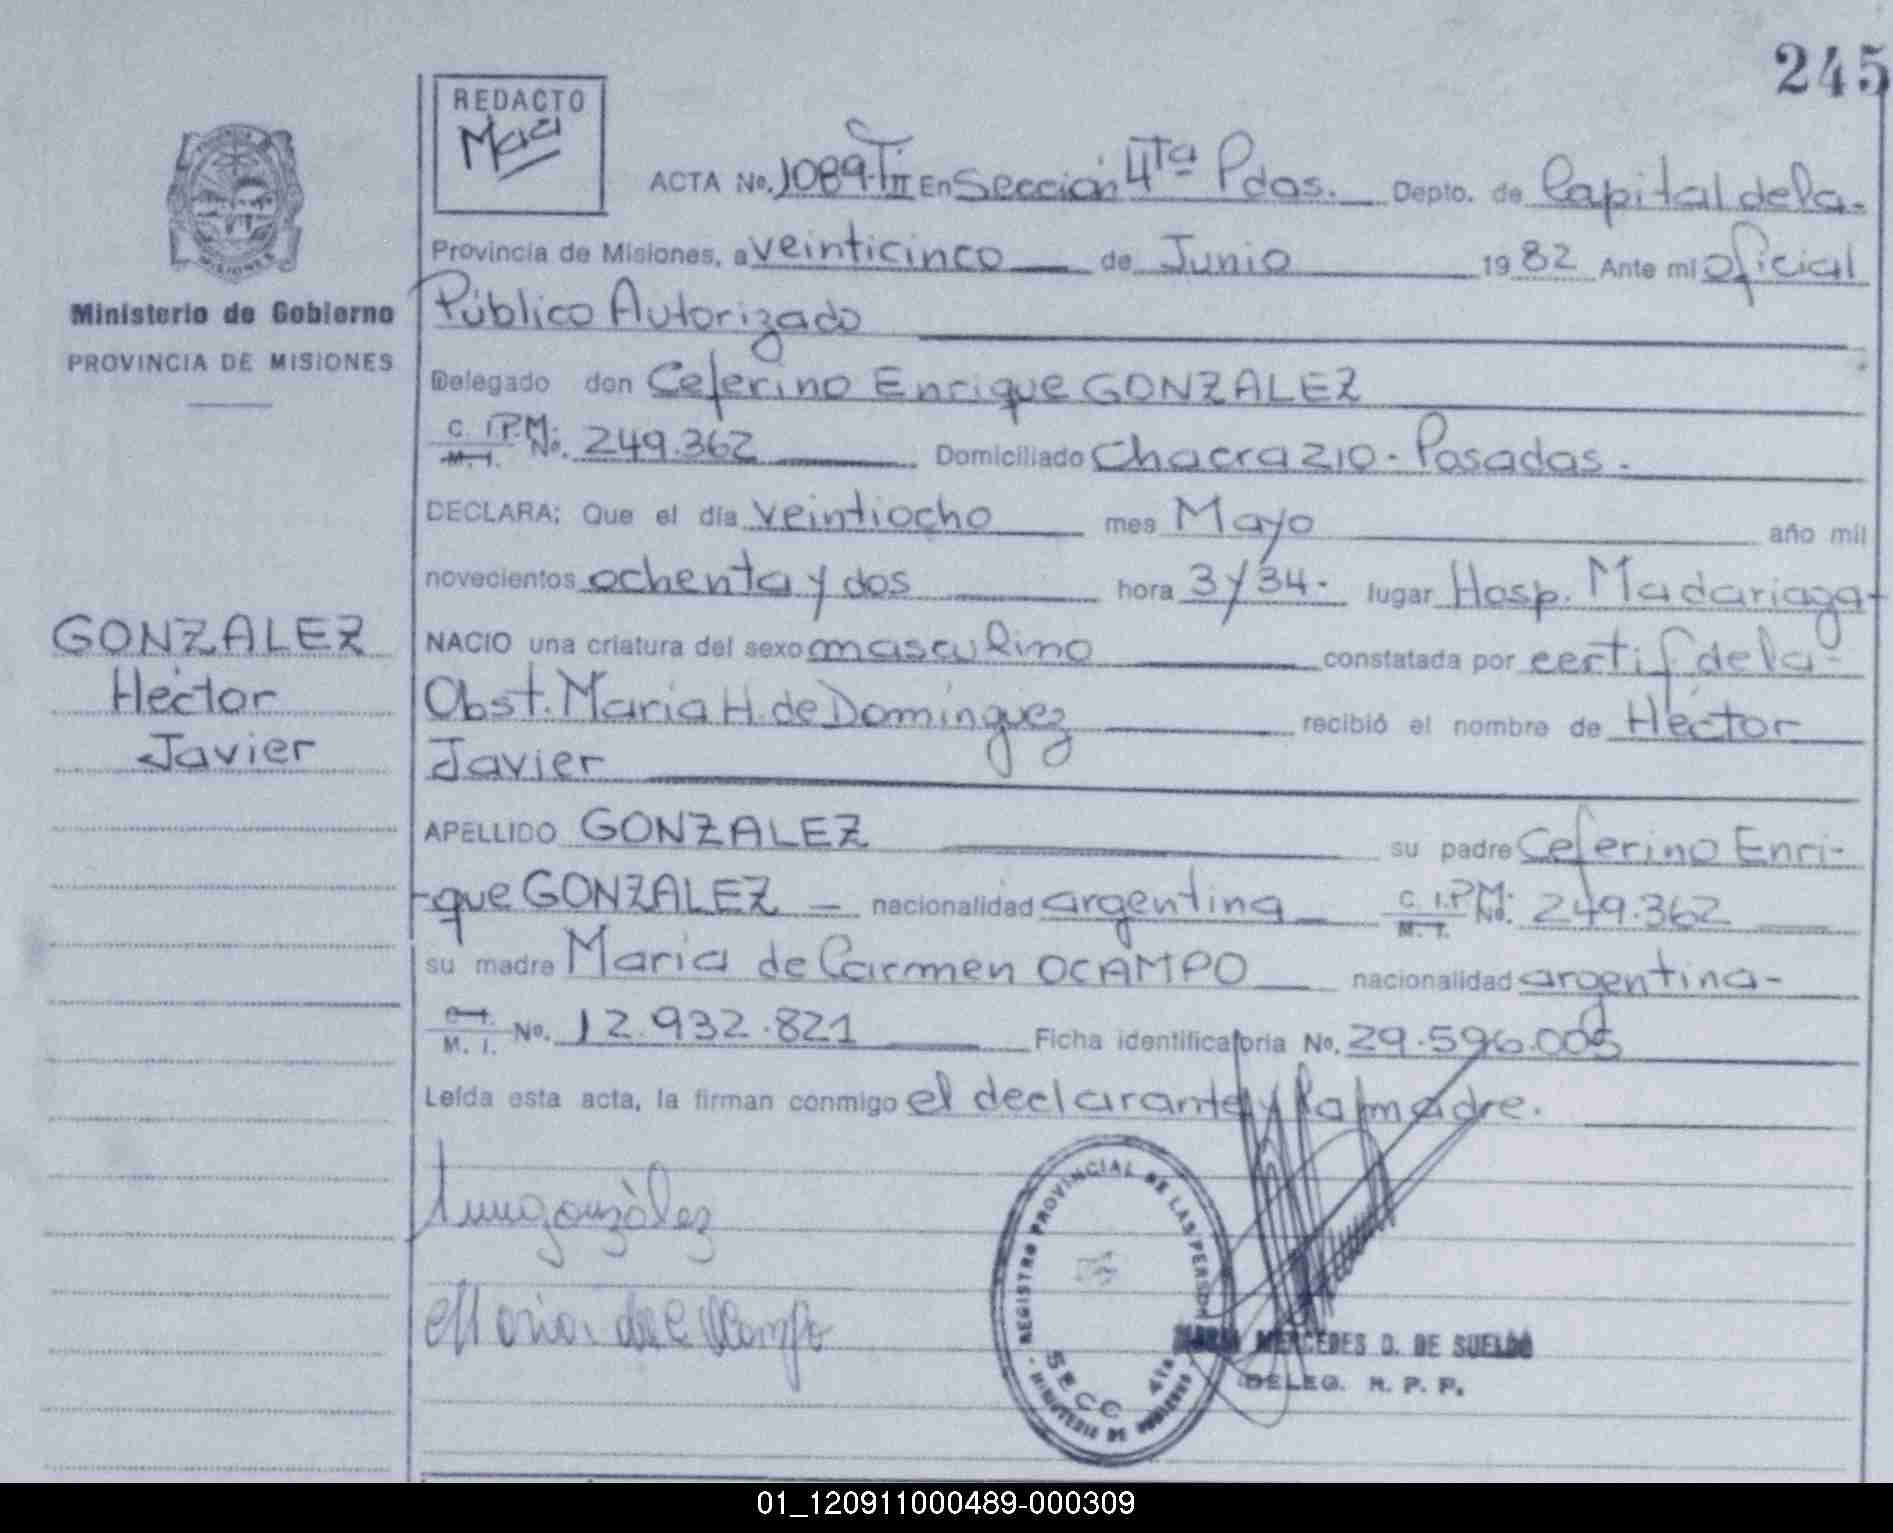 245
REDACTO
Maa
ACTA No. 1089-TºII En Sección 4Ta Pdas. Depto. de Capital de la-
Provincia de Misiones, a veinticinco de Junio 1982 Ante mi oficial
Público Autorizado
Delegado don Ceferino Enrique GONZALEZ
C. I.P.M. No. 249.362 Domiciliado Chacra 210 - Posadas.
M. I.
DECLARA; Que el día veintiocho mes Mayo año mil
novecientos ochenta y dos hora 3 y 34- lugar Hosp. Madariaga-
NACIO una criatura del sexo masculino constatada por certif de la-
Obst. Maria H. de Dominguez recibió el nombre de Héctor
Javier
APELLIDO GONZALEZ su padre Ceferino Enri-
-que GONZALEZ - nacionalidad argentina C. I.P.M. No. 249.362
M. I.
su madre Maria de Carmen OCAMPO nacionalidad argentina-
C. I.
M. I. No. 12.932.821 Ficha identificatoria No. 29.596.005
Leída esta acta, la firman conmigo el declarante y la madre.
gonzàlez
Maria del C Ocampo
MISIONES
Ministerio de Gobierno
PROVINCIA DE MISIONES
GONZALEZ
Héctor
Javier
REGISTRO PROVINCIAL DE LAS PERSONAS
SECC 4ta
MINISTERIO DE GOBIERNO
MARIA MERCEDES D. DE SUELDO
DELEG. R. P. P.
01_120911000489-000309